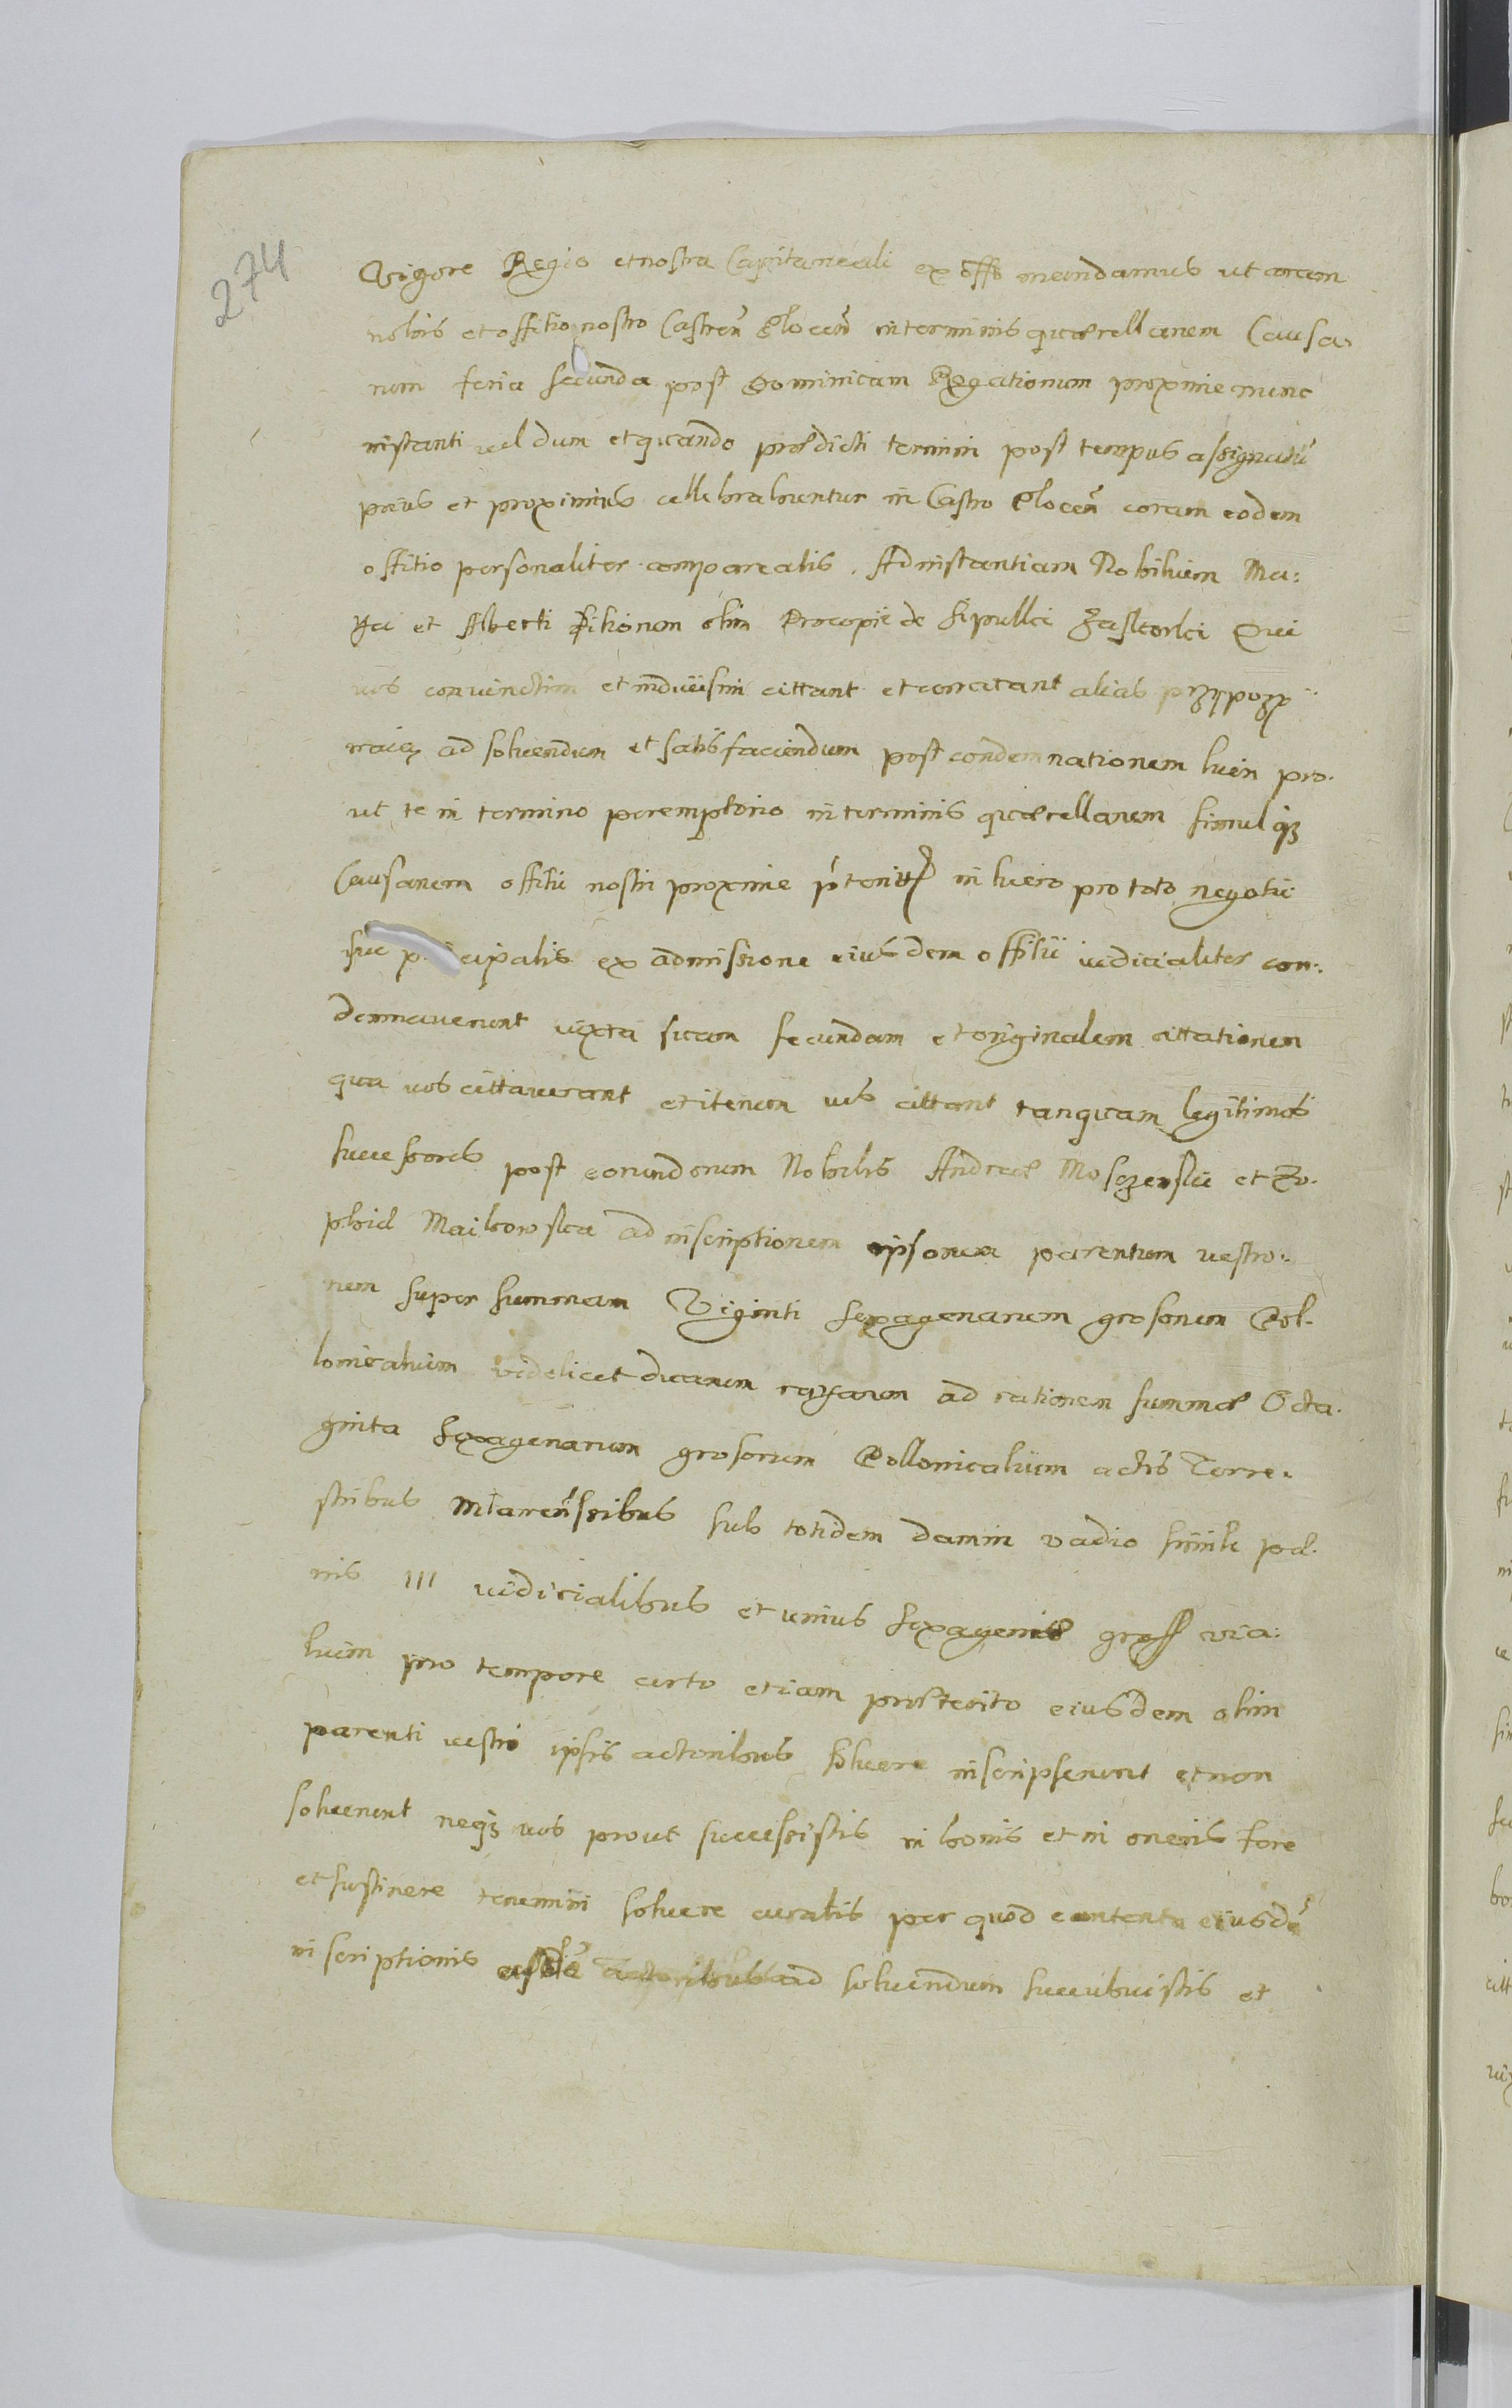 274
Vigore Regio et nostra Capitaneali ex offo mandamus ut coram
nobis et offitio nostro Castren Plocen in terminis quærellarum Causa-
rum feria secunda post Dominicam Rogationum proxime nunc
instanti vel dum et quando prædicti termini post tempus assignatū
prius et proximius cellebrabuntur in Castro Plocen coram eodem
offitio personaliter compareatis. Ad instantiam Nobilium Ma:
et Alberti filiorum olim Procopii de Qui
vos coniunctim et indiuisim cittant et
ad soluendum et satisfaciendum post condemnationem lucri pro-
ut te in termino peremptorio in terminis quærellarum simulqз
Causarum offitii nostri proxime in lucro pro toto negotii
sui principalis ex admissione eiusdem offitii iudicialiter con:
demnauerunt iuxta suam secundam et originalem cittationem
qua vos cittauerant et iterum vos cittant tanquam legitimos
successores post eorundorum Nobilis Andreæ et Zo-
phiæ ad inscriptionem ipsorum parentum vestro:
rum super summam Viginti sexagenarum grosorum Pol-
lonicalium videlicet duarum ratarum ad rationem summæ Octa-
ginta sexagenarum grosorum Pollonicalium actis Terre-
stribus sub totidem damni vadio simili pæ-
nis III iudicialibus et unius sexagenæ gross via:
lium pro tempore certo etiam præterito eiusdem olim
parenti vestri ipsis actoribus soluere inscripserunt et non
soluerunt neqз vos prout successistis in bonis et in oneris fore
et sustinere tenemini soluere curatis per quod contenta eiusdē
inscriptionis actoribus ad soluendum succubuistis et